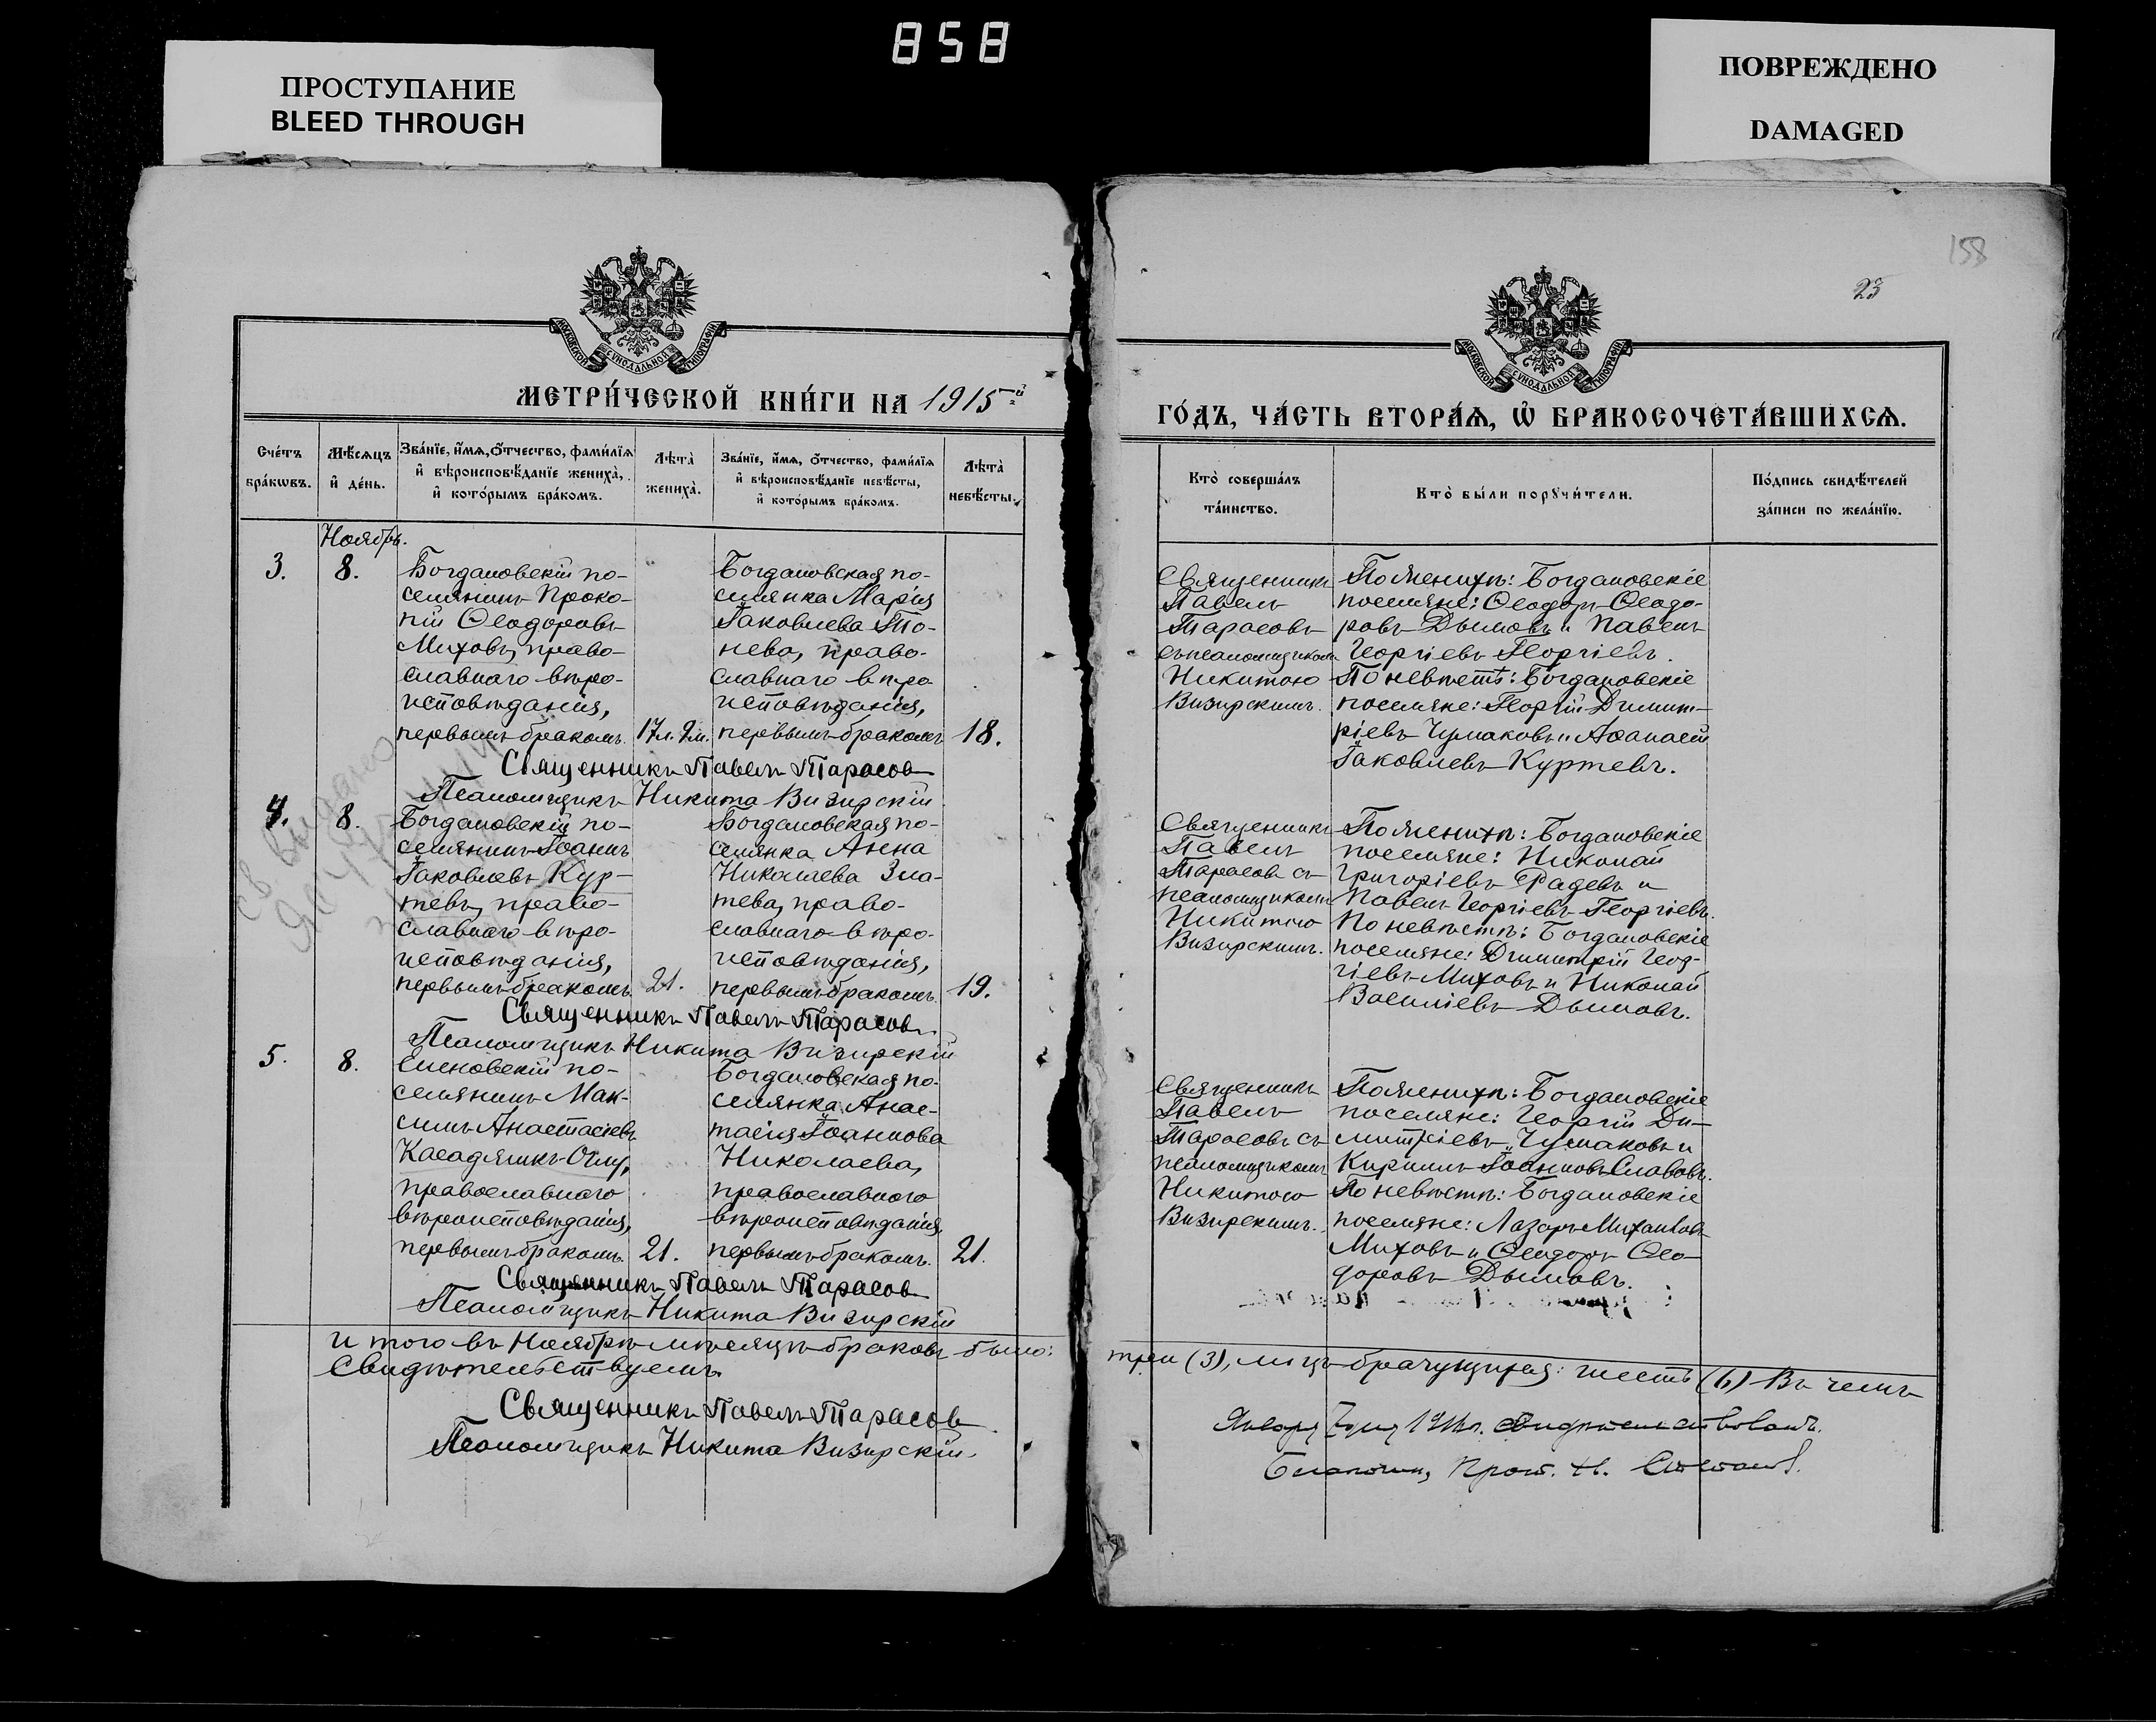 858
ПРОСТУПАНИЕ
BLEED THROUGH
ПОВРЕЖДЕНО
DAMAGED
158
23
МОСКОВСКОЙ СУНОДАЛЬНОЙ ТИПОГРАФІИ
МОСКОВСКОЙ СУНОДАЛЬНОЙ ТИПОГРАФІИ
МЕТРИ́ЧЕСКОЙ КНИ́ГИ НА 1915й
ГО́ДЪ, ЧА́СТЬ ВТОРА́Ѧ, Ѡ҆ БРАКОСОЧЕТА́ВШИХСѦ.
Сче́тъ
бра́кѡвъ.
Мѣ́сѧцъ
и҆ де́нь.
Зва́нїе, и҆́мѧ, ѻ҆́тчество, фами́лїѧ
и҆ вѣроисповѣ́данїе жениха̀,
и҆ кото́рымъ бра́комъ.
Лѣ́та̀
жениха̀.
Зва́нїе, и҆́мѧ, ѻ҆́тчество, фами́лїѧ
и҆ вѣроисповѣ́данїе невѣ́сты,
и҆ кото́рымъ бра́комъ.
Лѣ́та̀
невѣ́сты.
Кто̀ соверша́лъ
та́инство.
Кто̀ бы́ли порꙋчи́тели.
По́дпись свидѣ́телей
за́писи по жела́нїю.
Ноябрь.
3.
8.
Богдановскій по-
селянинъ Проко-
пій Ѳеодоровъ
Миховъ, право-
славнаго вѣро-
исповѣданія,
первымъ бракомъ.
17л. 9м.
Богдановская по-
селянка Марія
Іаковлева То-
нева, право-
славнаго вѣро-
исповѣданія,
первымъ бракомъ
18.
Священникъ
Павелъ
Тарасовъ
съ псаломщикомъ
Никитою
Визирскимъ.
По женихѣ: Богдановскіе
поселяне: Ѳеодоръ Ѳеодо-
ровъ Дымовъ и Павелъ
Георгіевъ Георгіевъ.
По невѣстѣ: Богдановскіе
поселяне: Георгій Димит-
ріевъ Чумаковъ и Аѳанасій
Іаковлевъ Куртевъ.
Священникъ Павелъ Тарасовъ
Псаломщикъ Никита Визирскій
4.
8.
Богдановскій по-
селянинъ Іоаннъ
Іаковлевъ Кур-
тевъ, право-
славнаго вѣро-
исповѣданія,
первымъ бракомъ.
21.
Богдановская по-
селянка Анна
Николаева Зла-
тева, право-
славнаго вѣро-
исповѣданія,
первымъ бракомъ.
19.
Священникъ
Павелъ
Тарасовъ съ
псаломщикомъ
Никитою
Визирскимъ.
По женихѣ: Богдановскіе
поселяне: Николай
Григоріевъ Радевъ и
Павелъ Георгіевъ Георгіевъ.
По невѣстѣ: Богдановскіе
поселяне: Димитрій Геор-
гіевъ Миховъ и Николай
Василіевъ Дымовъ.
Священникъ Павелъ Тарасовъ
Псаломщикъ Никита Визирскій
5.
8.
Еленовскій по-
селянинъ Мак-
симъ Анастасіевъ
православнаго
вѣроисповѣданія,
первымъ бракомъ.
21.
Богдановская по-
селянка Анас-
тасія Іоаннова
Николаева,
православнаго
вѣроисповѣданія,
первымъ бракомъ.
21.
Священникъ
Павелъ
Тарасовъ съ
псаломщикомъ
Никитою
Визирскимъ.
По женихѣ: Богдановскіе
поселяне: Георгій Ди-
митріевъ Чумаковъ и
Кириллъ Іоанновъ Славовъ.
По невѣстѣ: Богдановскіе
поселяне: Лазарь Михаиловъ
Миховъ и Ѳеодоръ Ѳео-
доровъ Дымовъ.
Священникъ Павелъ Тарасовъ
Псаломщикъ Никита Визирскій
Итого въ Ноябрѣ мѣсяцѣ браковъ было: три (3), лицъ брачущихся: шесть (6) Въ чемъ
свидѣтельствуемъ.
Священникъ Павелъ Тарасовъ
Псаломщикъ Никита Визирскій.
Января 7 дня свидѣтельствовалъ.
Прот. Н.